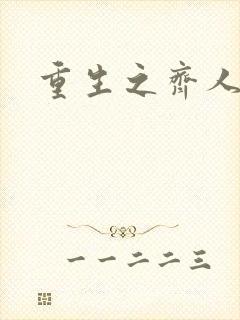 重生之齐人
一一二二三